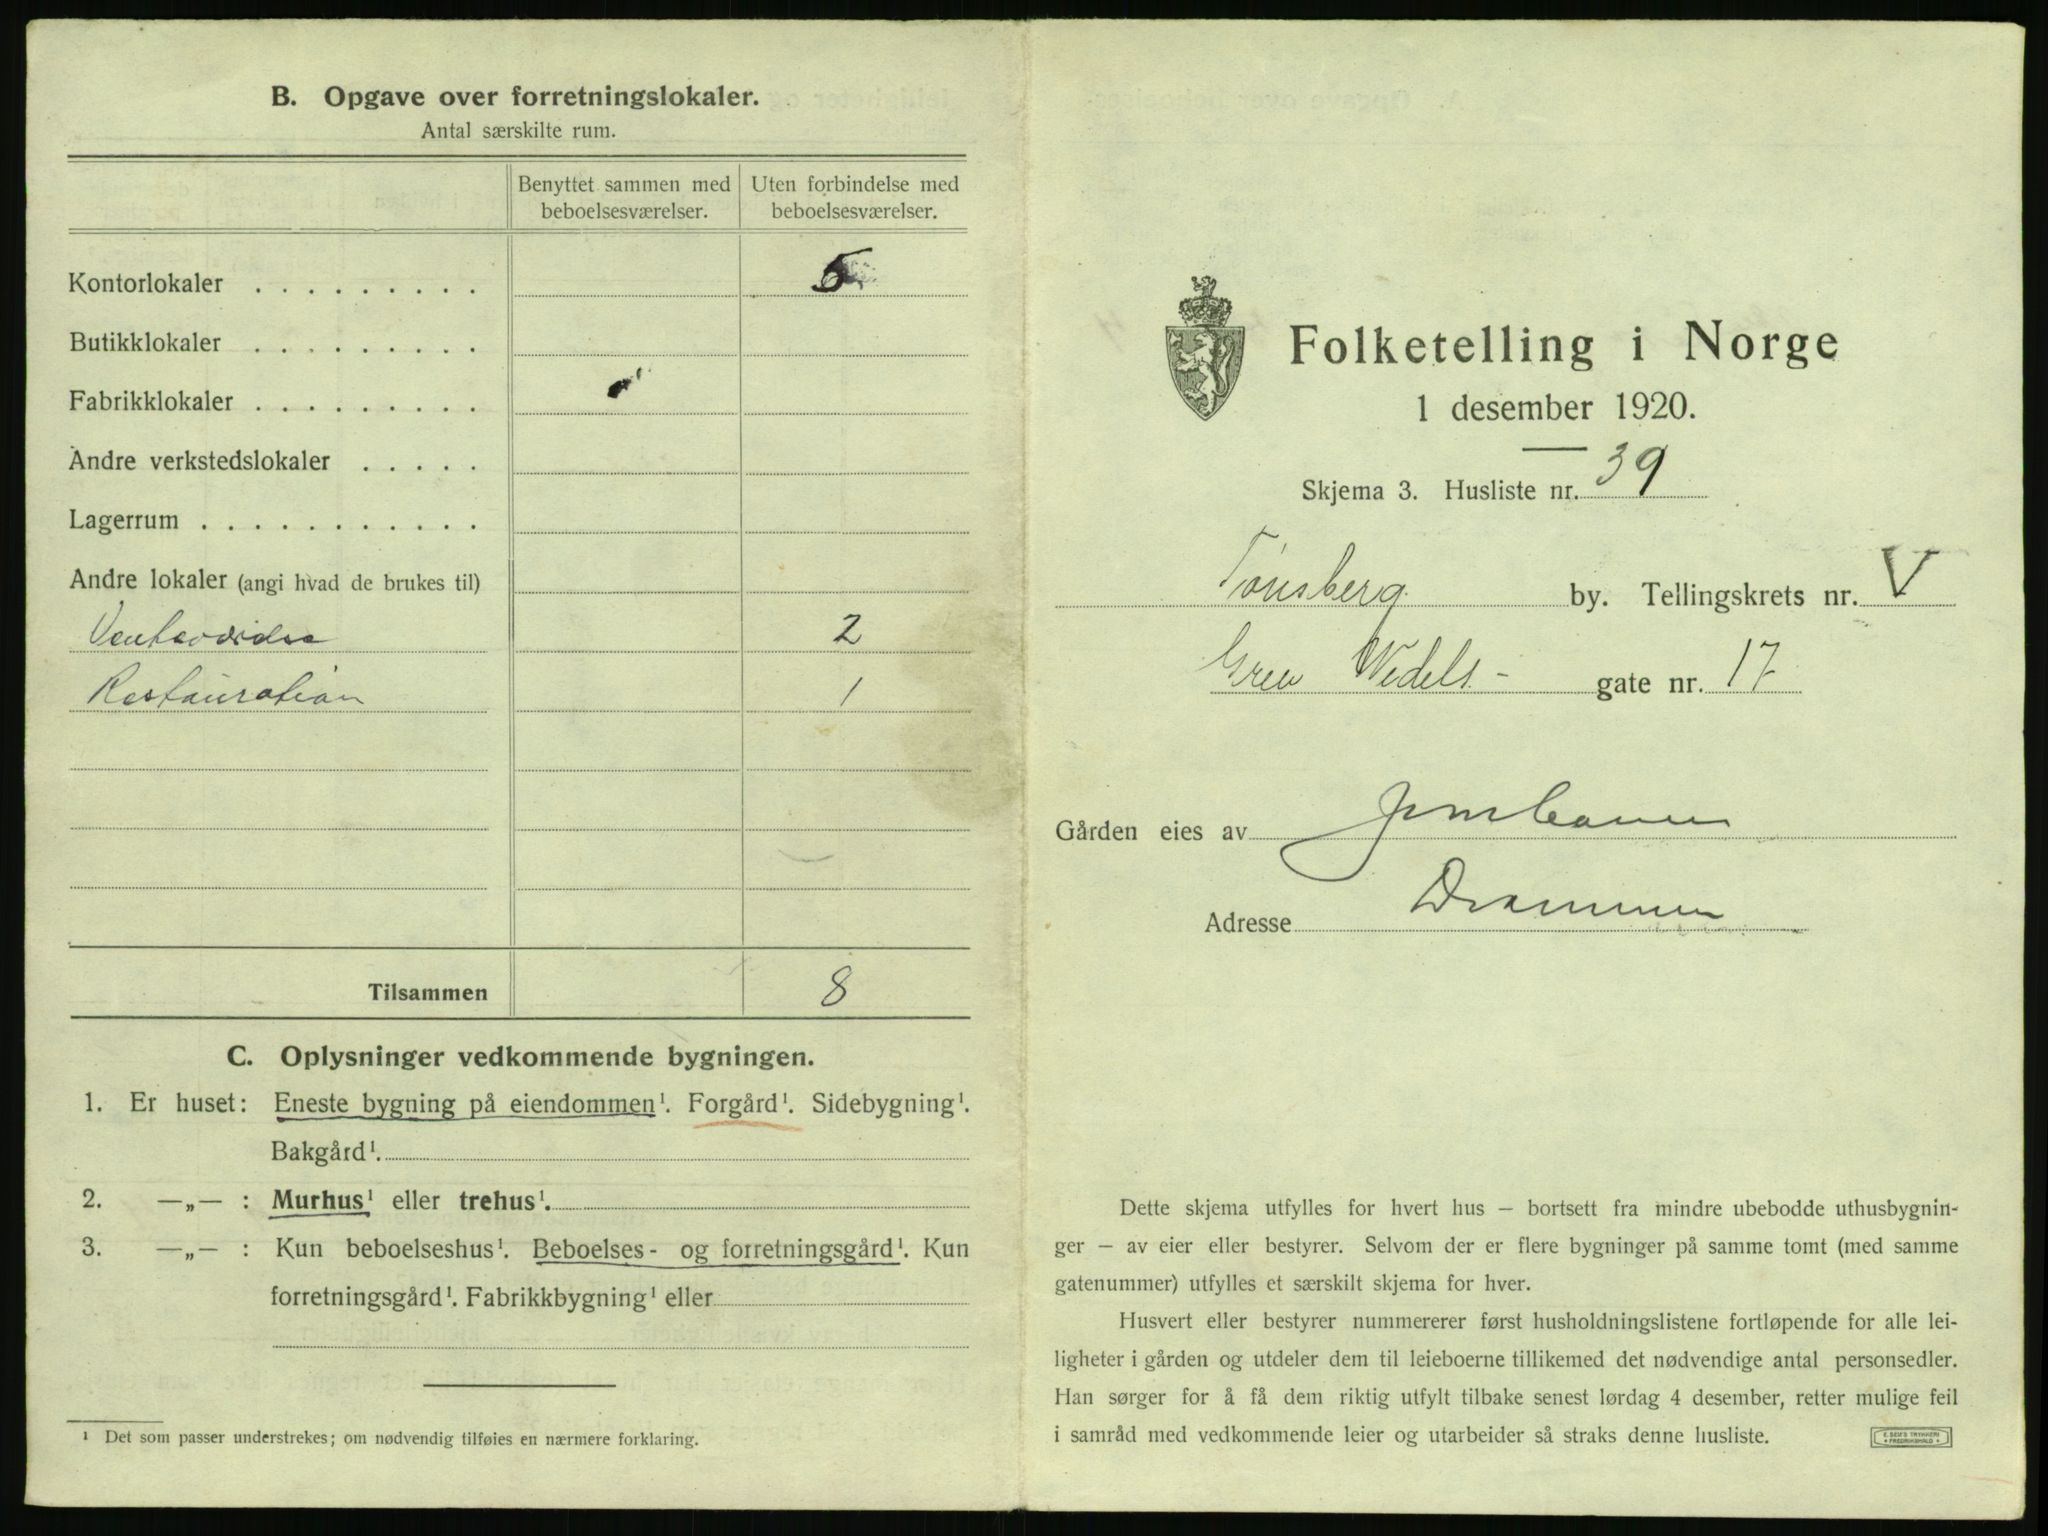 B. Opgave over forretningslokaler.
Antal særskilte rum.
Benyttet sammen med beboelsesværelser.
Uten forbindelse med beboelsesværelser.
Kontorlokaler . . . . . . . . . 5
Butikklokaler . . . . . . . . .
Fabrikklokaler . . . . . . . . .
Andre verkstedslokaler . . . . .
Lagerrum . . . . . . . . . . . .
Andre lokaler (angi hvad de brukes til)
2
Restauration 1
Tilsammen 8
C. Oplysninger vedkommende bygningen.
1. Er huset: Eneste bygning på eiendommen¹. Forgård¹. Sidebygning¹.
Bakgård¹.
2. —„— : Murhus¹ eller trehus¹.
3. —„— : Kun beboelseshus¹. Beboelses- og forretningsgård¹. Kun
forretningsgård¹. Fabrikkbygning¹ eller
¹ Det som passer understrekes; om nødvendig tilføies en nærmere forklaring.
Folketelling i Norge
1 desember 1920.
Skjema 3. Husliste nr. 39
Tønsberg by. Tellingskrets nr. V
Grev Wedels- gate nr. 17
Gården eies av Jernbanen
Adresse Drammen
Dette skjema utfylles for hvert hus — bortsett fra mindre ubebodde uthusbygnin-
ger — av eier eller bestyrer. Selvom der er flere bygninger på samme tomt (med samme
gatenummer) utfylles et særskilt skjema for hver.
Husvert eller bestyrer nummererer først husholdningslistene fortløpende for alle lei-
ligheter i gården og utdeler dem til leieboerne tillikemed det nødvendige antal personsedler.
Han sørger for å få dem riktig utfylt tilbake senest lørdag 4 desember, retter mulige feil
i samråd med vedkommende leier og utarbeider så straks denne husliste.
E. SEM'S TRYKKERI
FREDRIKSHALD